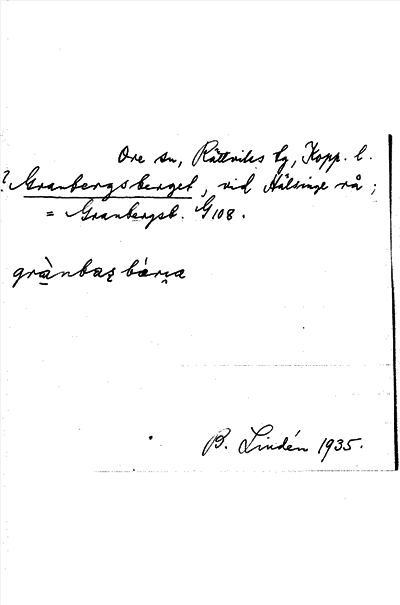 Ore sn, Rättviks tg, Kopp. l.
? Granbergsberget, vid Hälsinge rå;
= Granbergsb. G 108.
grànbaʐ bárɩa
B. Lindén 1935.